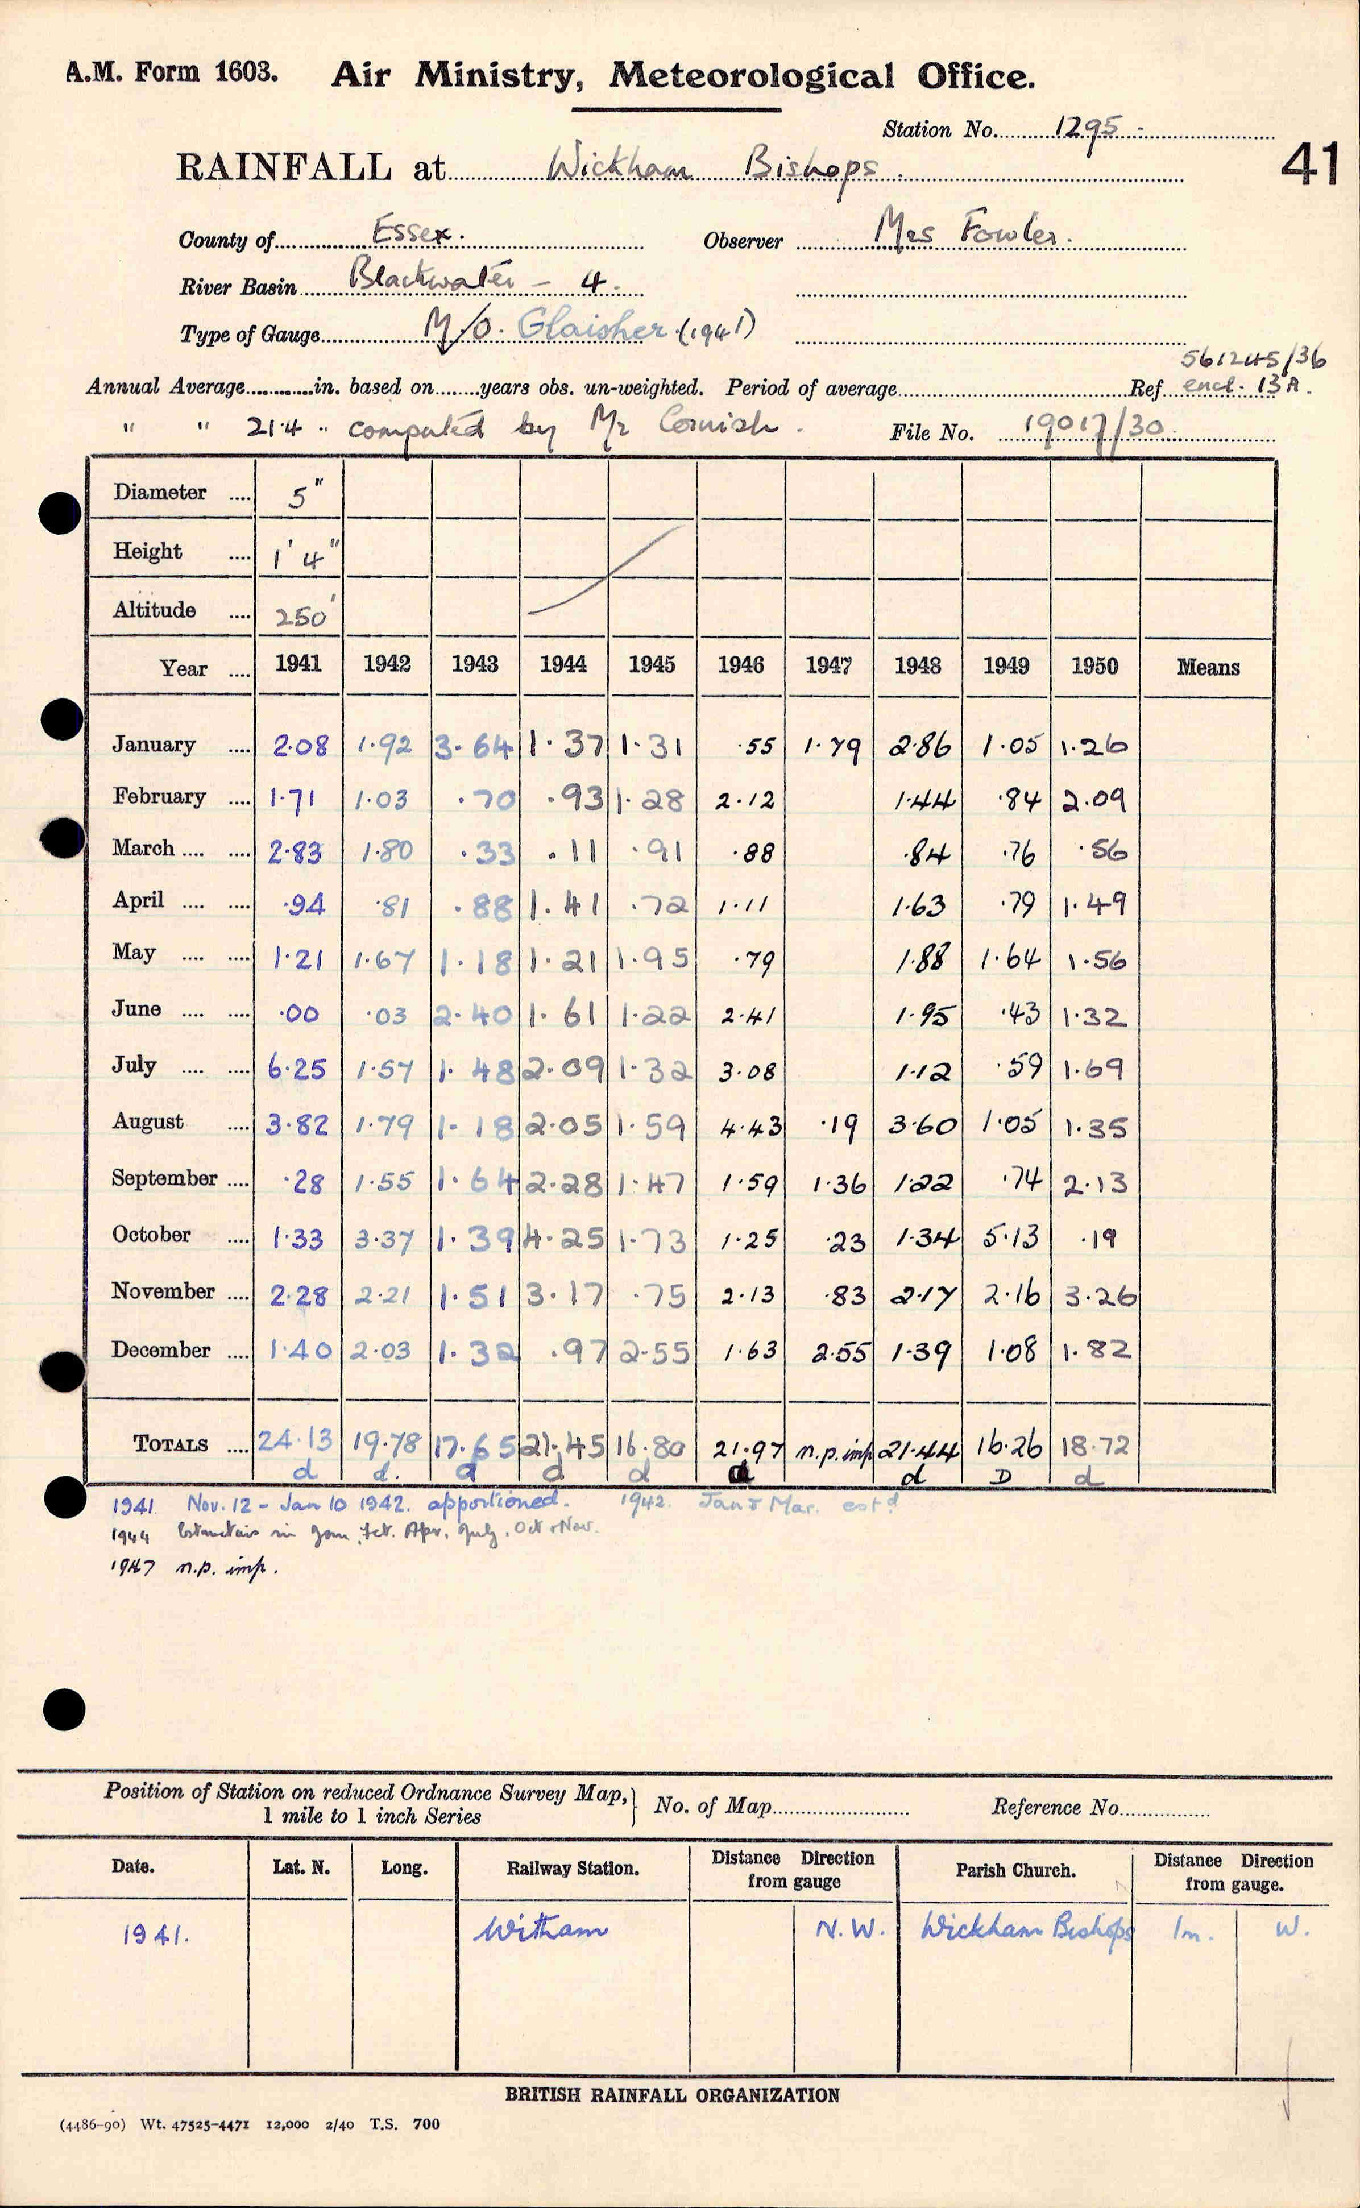 A.M. Form 1603. Air Ministry, Meteorological Office.
Station No. 1295
41
RAINFALL at Wickham Bishops.
County of Essex. Observer Mrs Fowler.
River Basin Blackwater - 4.
Type of Gauge M/O. Glaisher (1941)
561245/36
Annual Average............in. based on........years obs. un-weighted. Period of average Ref encl. 13A.
" " 21.4 " computed by Mr Cornish. File No. 19017/30
Diameter .... 5"
Height .... 1' 4"
Altitude .... 250'
Year .... 1941 1942 1943 1944 1945 1946 1947 1948 1949 1950 Means
January .... 2.08 1.92 3.64 1.37 1.31 .55 1.79 2.86 1.05 1.26
February .... 1.71 1.03 .70 .93 1.28 2.12 1.44 .84 2.09
March .... .... 2.83 1.80 .33 .11 .91 .88 .84 .76 .56
April .... .... .94 .81 .88 1.41 .72 1.11 1.63 .79 1.49
May .... .... 1.21 1.67 1.18 1.21 1.95 .79 1.88 1.64 1.56
June .... .... .00 .03 2.40 1.61 1.22 2.41 1.95 .43 1.32
July .... .... 6.25 1.57 1.48 2.09 1.32 3.08 1.12 .59 1.69
August .... 3.82 1.79 1.18 2.05 1.59 4.43 .19 3.60 1.05 1.35
September .... .28 1.55 1.64 2.28 1.47 1.59 1.36 1.22 .74 2.13
October .... 1.33 3.37 1.39 4.25 1.73 1.25 .23 1.34 5.13 .19
November .... 2.28 2.21 1.51 3.17 .75 2.13 .83 2.17 2.16 3.26
December .... 1.40 2.03 1.32 .97 2.55 1.63 2.55 1.39 1.08 1.82
TOTALS .... 24.13 19.78 17.65 21.45 16.80 21.97 n.p. imp 21.44 16.26 18.72
d d. d d d d d D d
1941 Nov. 12 - Jan 10 1942. apportioned. 1942. Jan & Mar. estd
1944 in Jan, Apr. July. Oct & Nov.
1947 n.p. imp.
Position of Station on reduced Ordnance Survey Map, No. of Map Reference No.
1 mile to 1 inch Series
Date. Lat. N. Long. Railway Station. Distance Direction from gauge Parish Church. Distance Direction from gauge.
1941. Witham N.W. Wickham Bishops 1m. W.
BRITISH RAINFALL ORGANIZATION
(4486-90) Wt. 47525-4471 12,000 2/40 T.S. 700